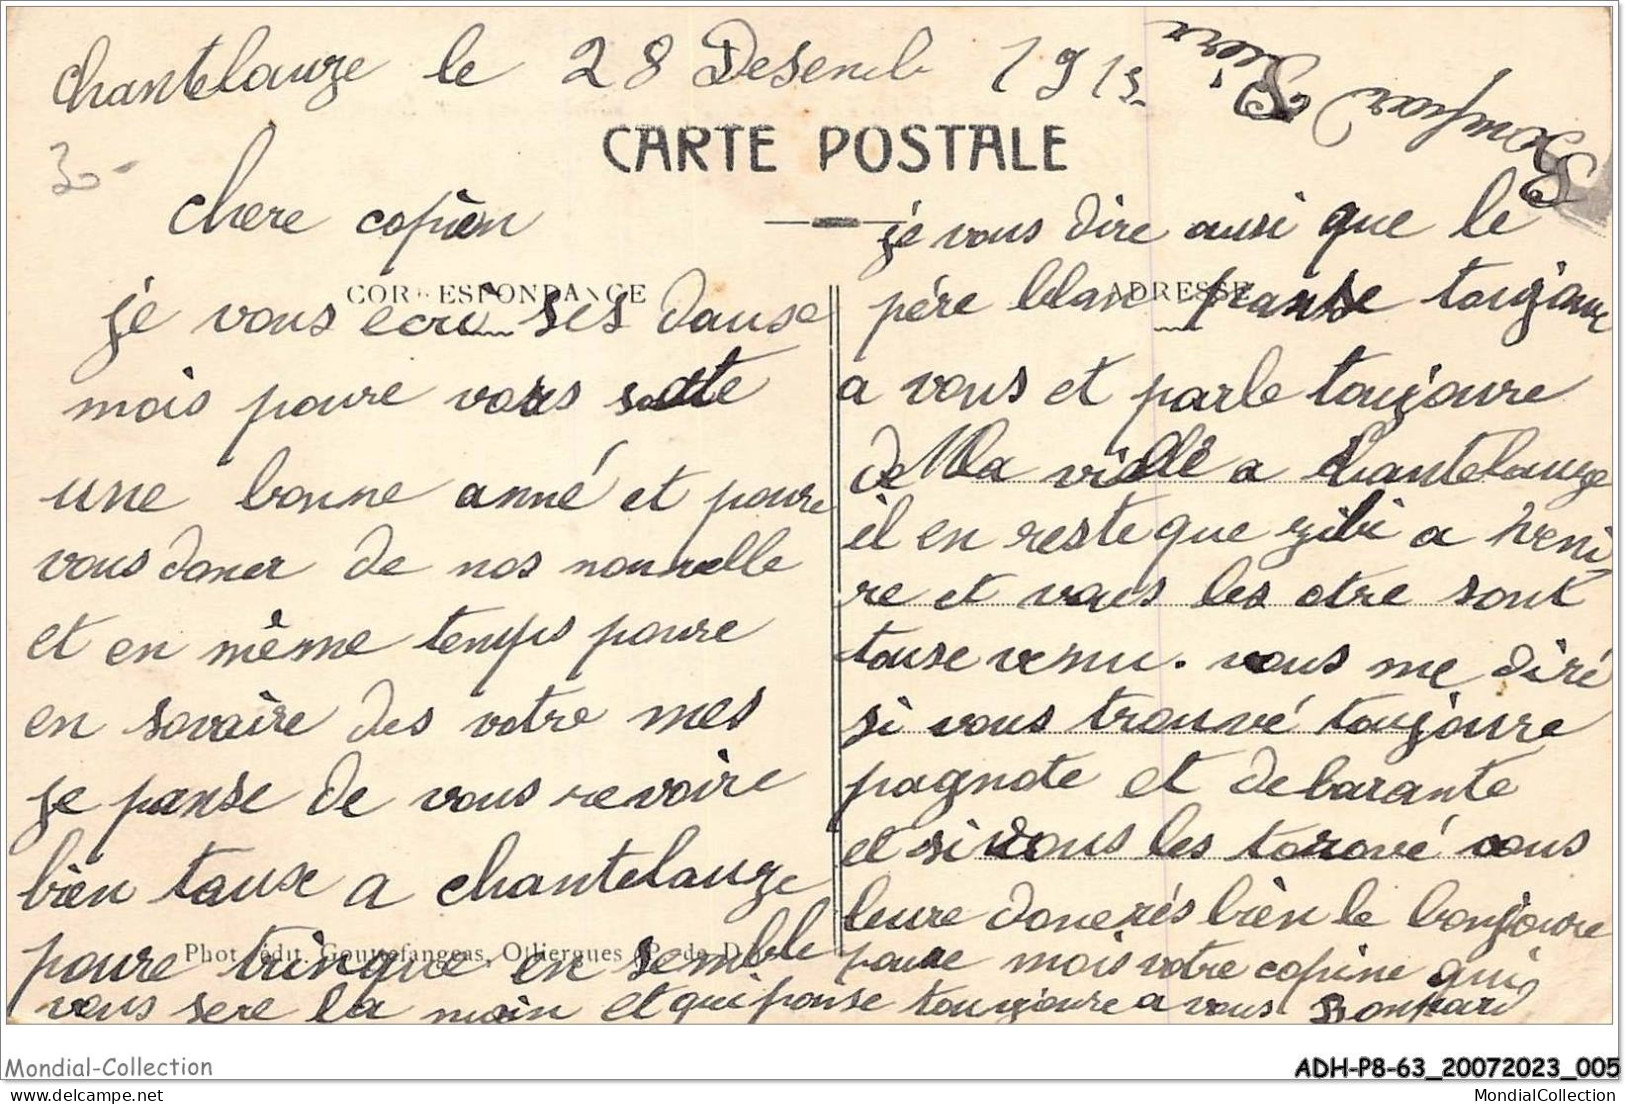 Chantelauze le 28 Desemb 1915
CARTE POSTALE
30-
Chere copièn
CORRESPONDANCE
je vous ecri ses dause
mois poure vous
une bonne anné et poure
vous doner de nos nouvelle
et en même temps poure
en savoire des votre mes
je panse de vous revoire
bièn tause a chantelauze
poure trinque en semble
Phot. édit. Gouttefangeas, Olliergues (P.-de-D.)
vous sere la main et qui panse toujoure a vous Bonpard
je vous dire ausi que le
ADRESSE
père blan panse toujoure
a vous et parle toujoure
de la ville a Chantelauze
il en reste que zibi a veni
re et vous les otre sont
touse venu. vous me diré
si vous trouvé toujoure
pagnote et debarante
et si vous les torové vous
leure donerés bièn le bonjoure
poure mois votre copine qui
Bonpar Piera
Mondial-Collection
ADH-P8-63_20072023_005
delcampe.net
MondialCollection